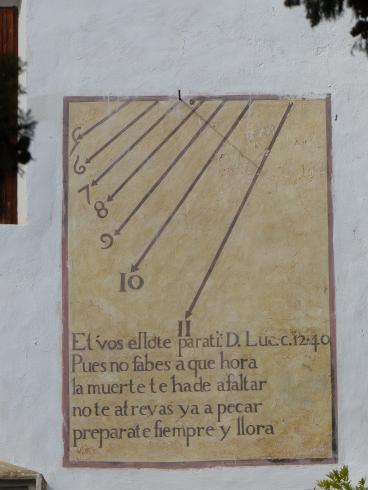 5
6
7
8
9
10
11
Et vos estote parati: D. Luc. c. 12. 40
Pues no ſabes a que hora
la muerte te ha de aſaltar
no te atrevas ya a pecar
preparate ſiempre y llora